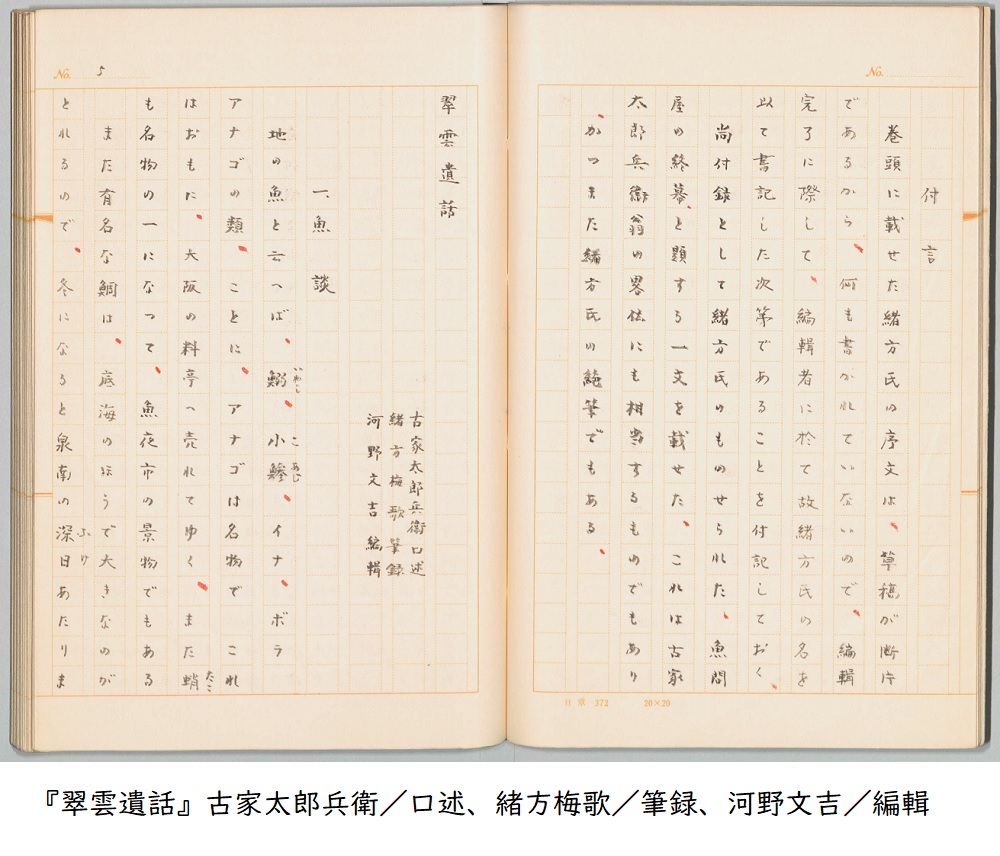 No.
付言
巻頭に載せた緒方氏の序文は、草稿が断片
であるから、何も書かれていないので、編輯
完了に際して、編輯者に於て故緒方氏の名を
以て書記した次第であることを付記しておく、
尚付録として緒方氏のものせられた、魚問
屋の終幕、と題する一文を載せた、これは古家
太郎兵衛翁の畧伝にも相当するものでもあり
、かつまた緒方氏の絶筆でもある、
日章 372 20×20
No. 5
翠雲遺話
古家太郎兵衛口述
緒方梅歌筆録
河野文吉編輯
一、魚談
地の魚と云へば、鰯、小鯵、イナ、ボラ
いわし
こあじ
アナゴの類、ことに、アナゴは名物で これ
はおもに、大阪の料亭へ売れてゆく、また蛸
たこ
も名物の一になって、魚夜市の景物でもある
また有名な鯛は、底海のほうで大きなのが
とれるので、冬になると泉南の深日あたりま
ふけ
『翠雲遺話』古家太郎兵衛／口述、緒方梅歌／筆録、河野文吉／編輯